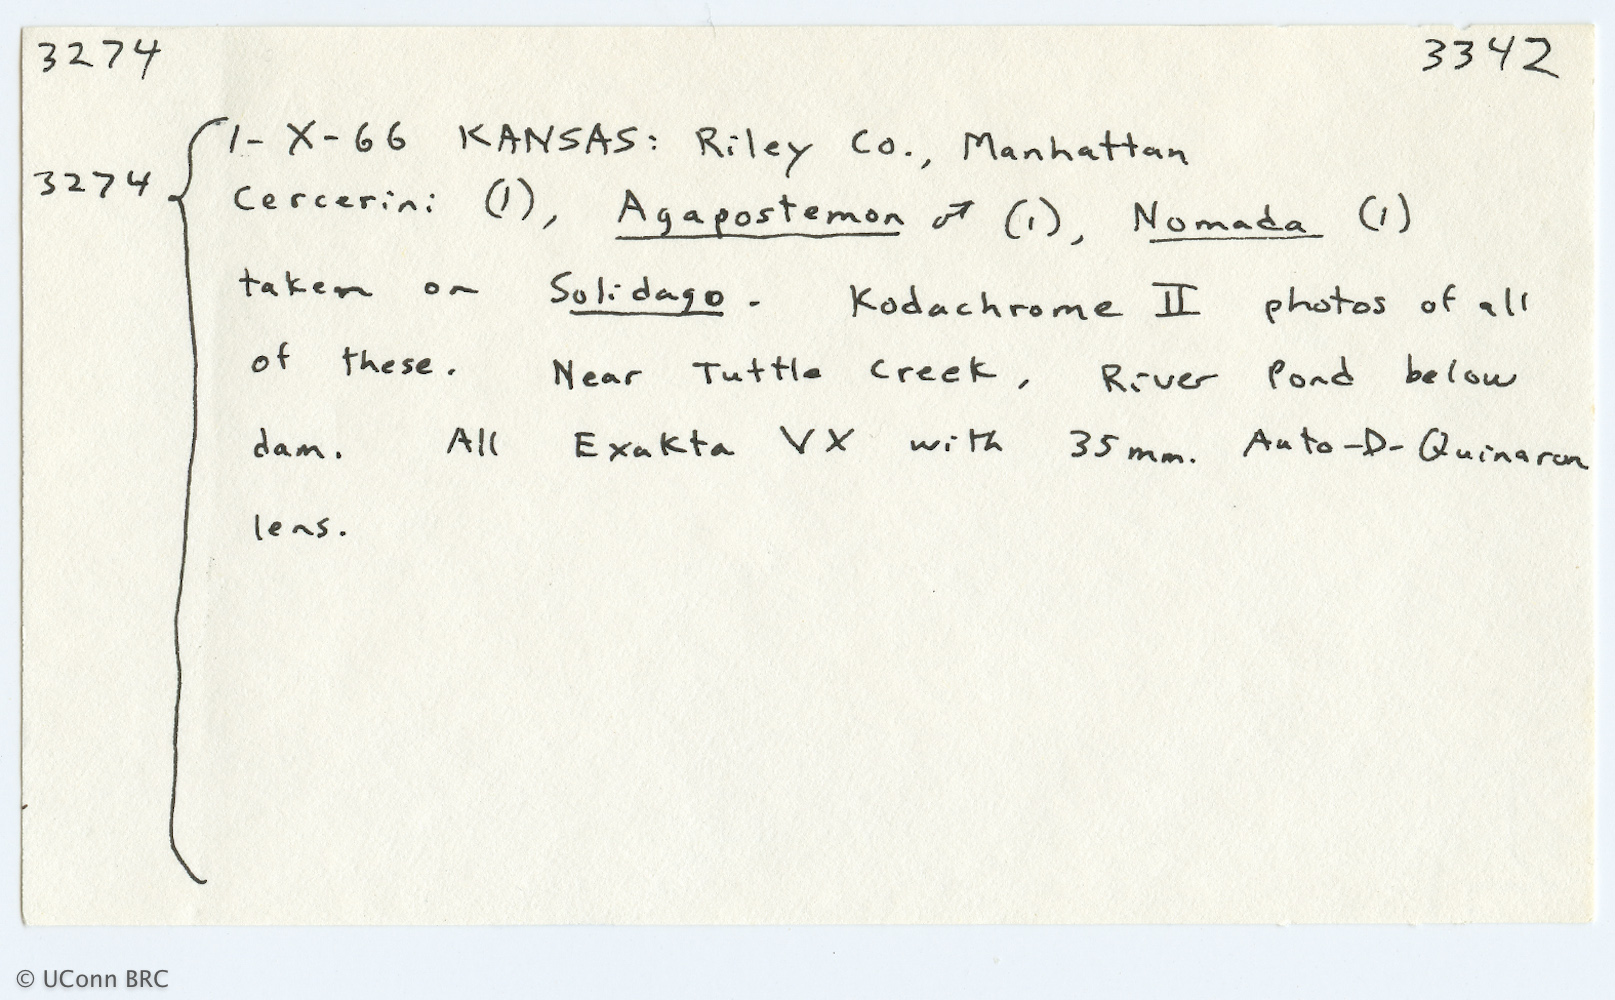 3274 3342
1-X-66 KANSAS: Riley Co., Manhattan
3274 Cercerini (1), Agapostemon ♂ (1), Nomada (1)
taken on Solidago. Kodachrome II photos of all
of these. Near Tuttle Creek, River Pond below
dam. All Exakta VX with 35mm. Auto-D-Quinaron
lens.
© UConn BRC